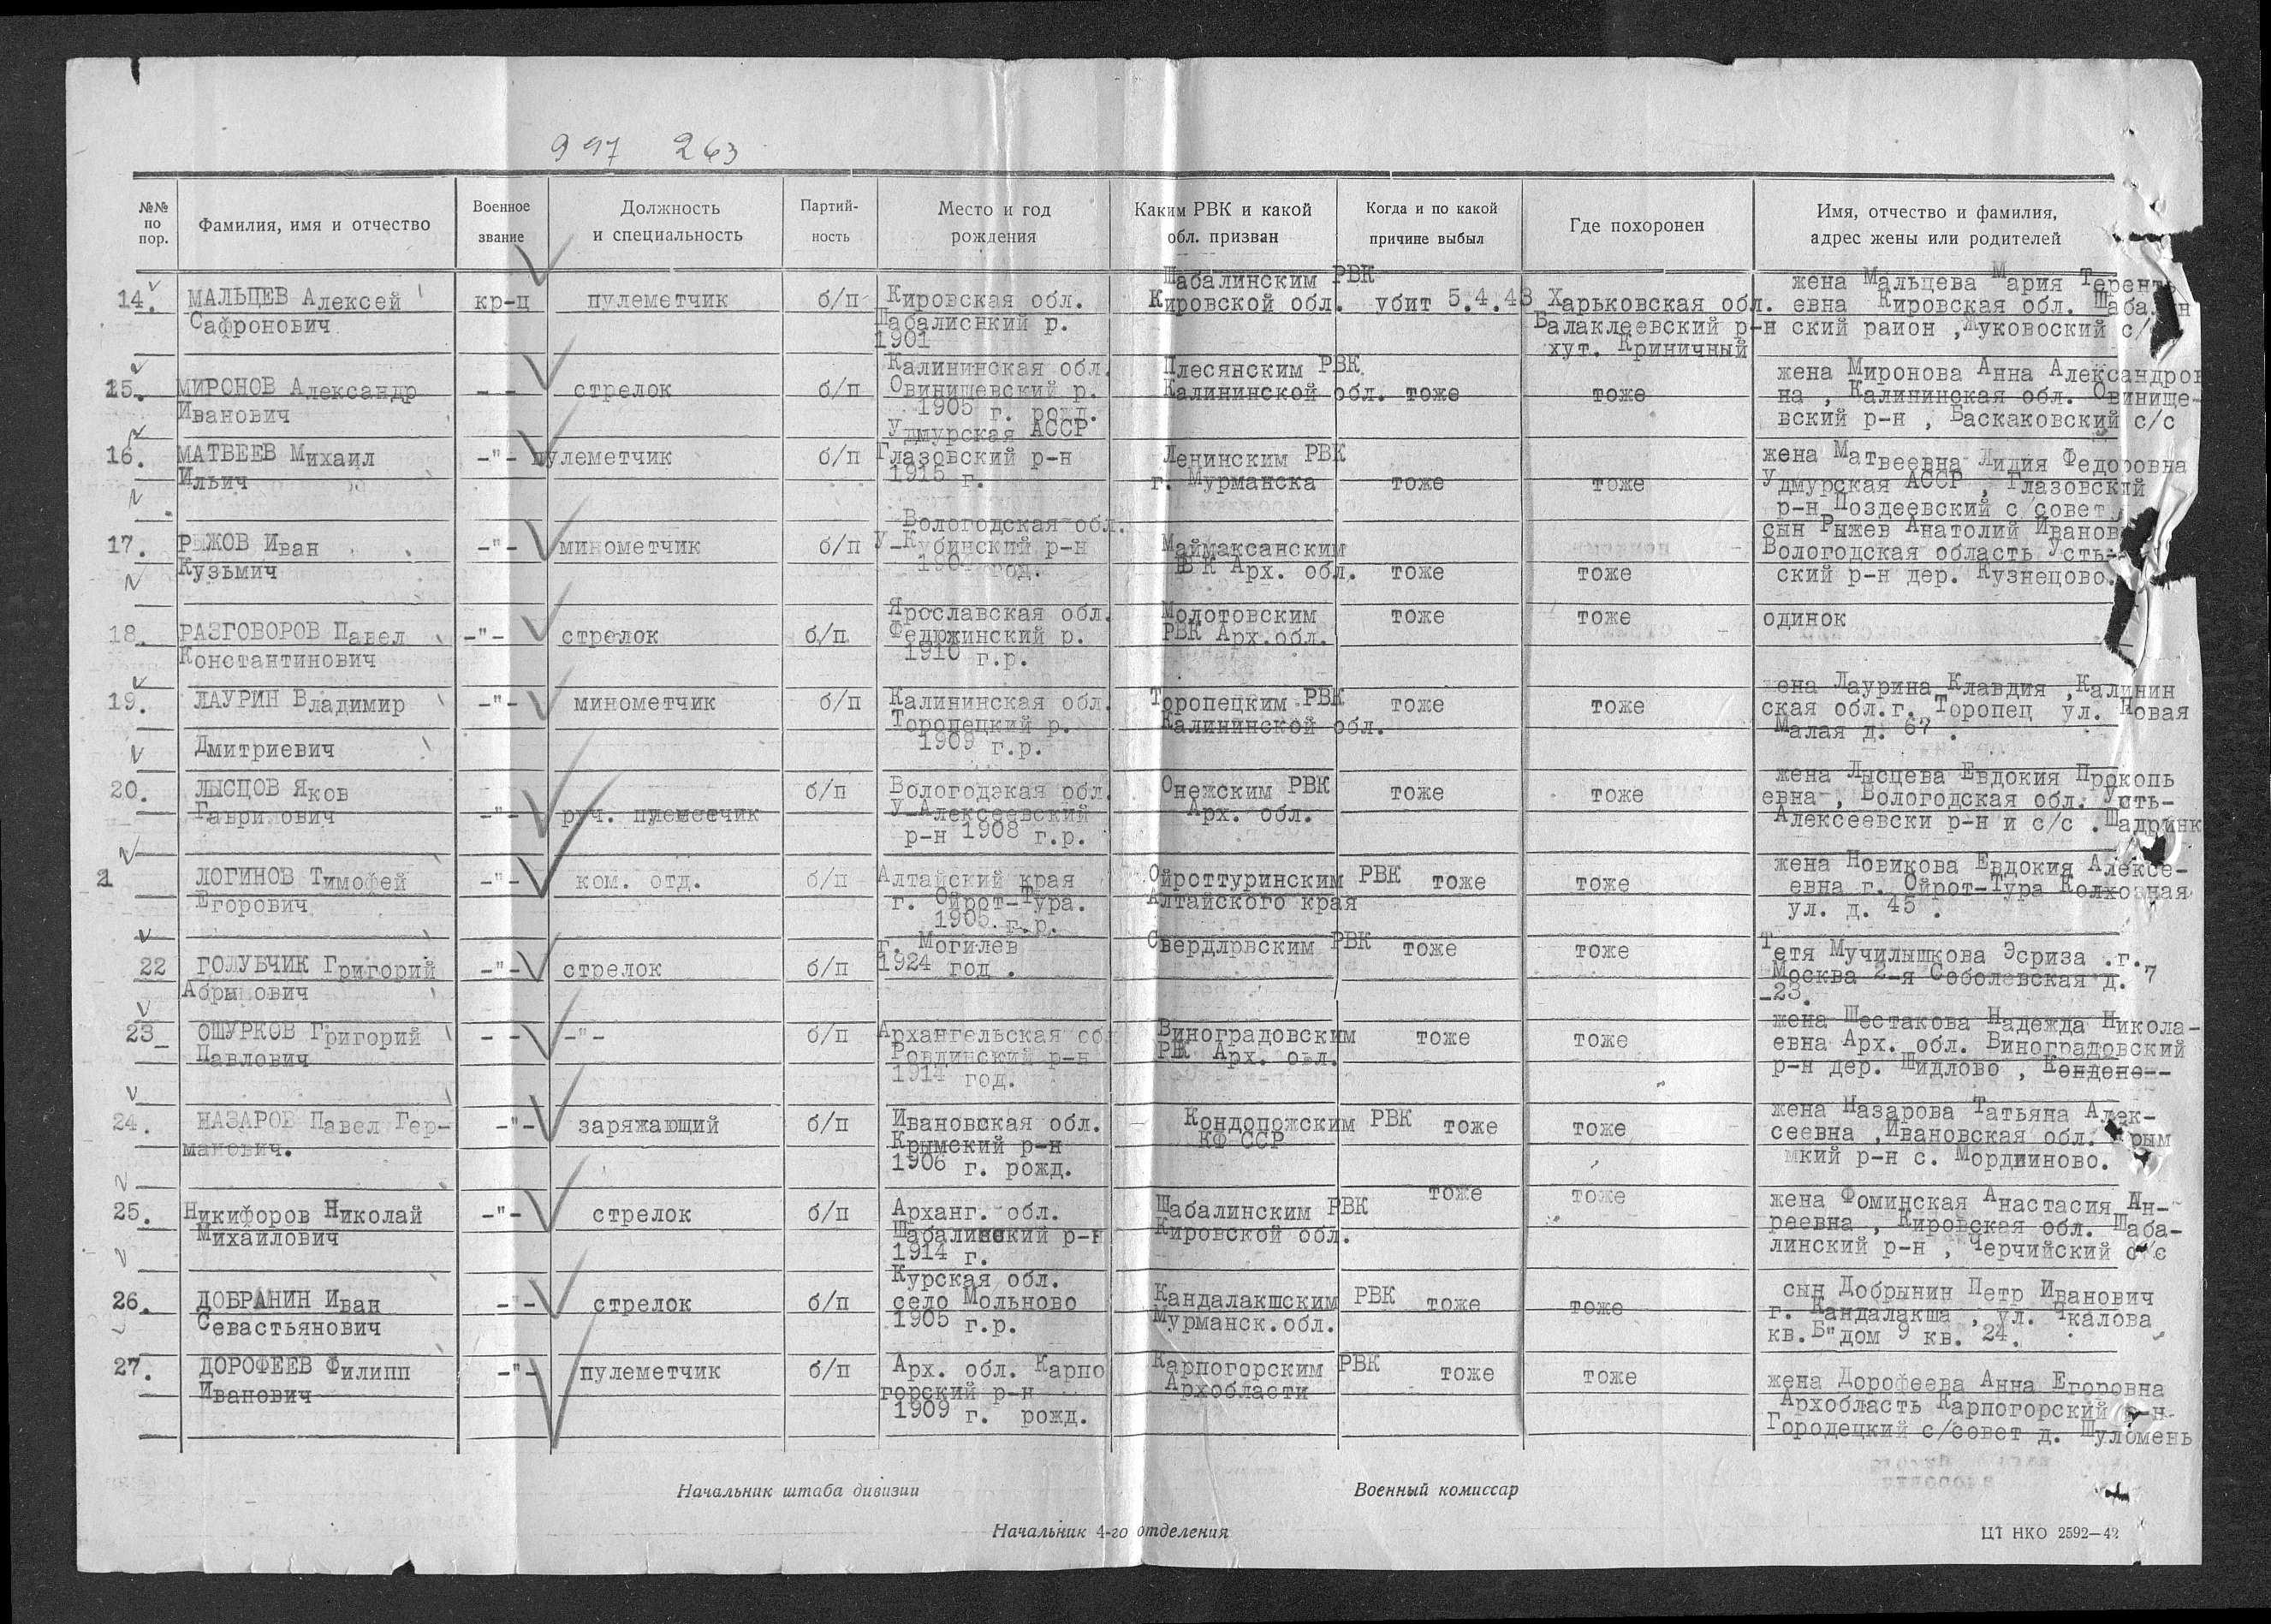 997 263
№№ по пор.
Фамилия, имя и отчество
Военное звание
Должность и специальность
Партий-ность
Место и год рождения
Каким РВК и какой обл. призван
Когда и по какой причине выбыл
Где похоронен
Имя, отчество и фамилия, адрес жены или родителей
14. МАЛЬЦЕВ Алексей Сафронович
кр-ц пулеметчик б/п
Кировская обл.
Шабалиснкий р.
1901
Шабалинским РВК
Кировской обл.
убит 5.4.43
Харьковская обл.
Балаклеевский р-н
хут. Криничный
жена Мальцева Мария Теренть
евна Кировская обл. Шабалин
ский раион ,Жуковоский с/
15. МИРОНОВ Александр
Иванович
- - стрелок б/п
Калининская обл.
Овинищевский р.
1905 г. рожд.
Плесянским РВК
Калининской обл. тоже тоже
жена Миронова Анна Александров
на , Калининская обл. Овинище-
вский р-н , Баскаковский с/с
16. МАТВЕЕВ Михаил
Ильич
-"- пулеметчик б/п
Удмурская АССР
Глазовский р-н
1915 г.
Ленинским РВК
г. Мурманска тоже тоже
жена Матвеевна Лидия Федоровна
Удмурская АССР , Глазовский
р-н Поздеевский с/совет
17. РЫЖОВ Иван
Кузьмич
-"- минометчик б/п
Вологодская обл.
У-Кубинский р-н
год.
Маймаксанским
РВК Арх. обл. тоже тоже
сын Рыжев Анатолий Иванов
Вологодская область Усть-
ский р-н дер. Кузнецово.
18. РАЗГОВОРОВ Павел
Константинович
-"- стрелок б/п
Ярославская обл.
Федюжинский р.
1910 г.р.
Молотовским
РВК Арх.обл.
тоже тоже одинок
19. ЛАУРИН Владимир
Дмитриевич
-"- минометчик б/п
Калининская обл.
Торопецкий р.
1909 г.р.
Торопецким РВК
Калининской обл.
тоже тоже
жена Лаурина Клавдия ,Калинин
ская обл.г. Торопец ул. Новая
Малая д. 67 .
20. ЛЫСЦОВ Яков
Гаврилович
-"- руч. пулеметчик б/п
Вологодзкая обл.
У-Алексеевский
р-н 1908 г.р.
Онежским РВК
Арх. обл.
тоже тоже
жена Лысцева Евдокия Прокопь
евна , Вологодская обл. Усть-
Алексеевски р-н и с/с .Шадринк
21 ЛОГИНОВ Тимофей
Егорович
-"- ком. отд. б/п
Алтайский края
г. Ойрот-Тура.
1905. г.р.
Ойроттуринским РВК
Алтайского края
тоже тоже
жена Новикова Евдокия Алексе-
евна г. Ойрот-Тура Колхозная
ул. д. 45 .
22 ГОЛУБЧИК Григорий
Абрымович
-"- стрелок б/п
г. Могилев
1924 год .
Свердлрвским РВК тоже тоже
Тетя Мучилышкова Эсриза .г.
Москва 2-я Соболевская д. 7
-23.
23_ ОШУРКОВ Григорий
Павлович
- - -"- б/п
Архангельская об
Ровдинский р-н
1914 год.
Виноградовским
РВК Арх. обл.
тоже тоже
жена Шестакова Надежда Никола-
евна Арх. обл. Виноградовский
р-н дер. Шидлово , Кендене--
24. НАЗАРОВ Павел Гер-
манович.
-"- заряжающий б/п
Ивановская обл.
Крымский р-н
1906 г. рожд.
Кондопожским РВК
КФ ССР
тоже тоже
жена Назарова Татьяна Алек-
сеевна ,Ивановская обл. Крым
мкий р-н с. Мордииново.
25. Никифоров Николай
Михайлович
-"- стрелок б/п
Арханг. обл.
Шабалинский р-н
1914 г.
Шабалинским РВК
Кировской обл.
тоже тоже
жена Фоминская Анастасия Ан-
реевна , Кировская обл. Шаба-
линский р-н , Черчийский с/с
26. ДОБРАНИН Иван
Севастьянович
- - стрелок б/п
Курская обл.
село Мольново
1905 г.р.
Кандалакшским РВК
Мурманск.обл.
тоже тоже
сын Добрынин Петр Иванович
г. Кандалакша , ул. Чкалова
кв.Б" дом 9 кв. 24.
27. ДОРОФЕЕВ Филипп
Иванович
-"- пулеметчик б/п
Арх. обл. Карпо
горский р-н
1909 г. рожд.
Карпогорским РВК
Архобласти
тоже тоже
жена Дорофеева Анна Егоровна
Архобласть Карпогорский р-н
Городецкий с/совет д. Шуломень
Начальник штаба дивизии
Военный комиссар
Начальник 4-го отделения
ЦТ НКО 2592—42